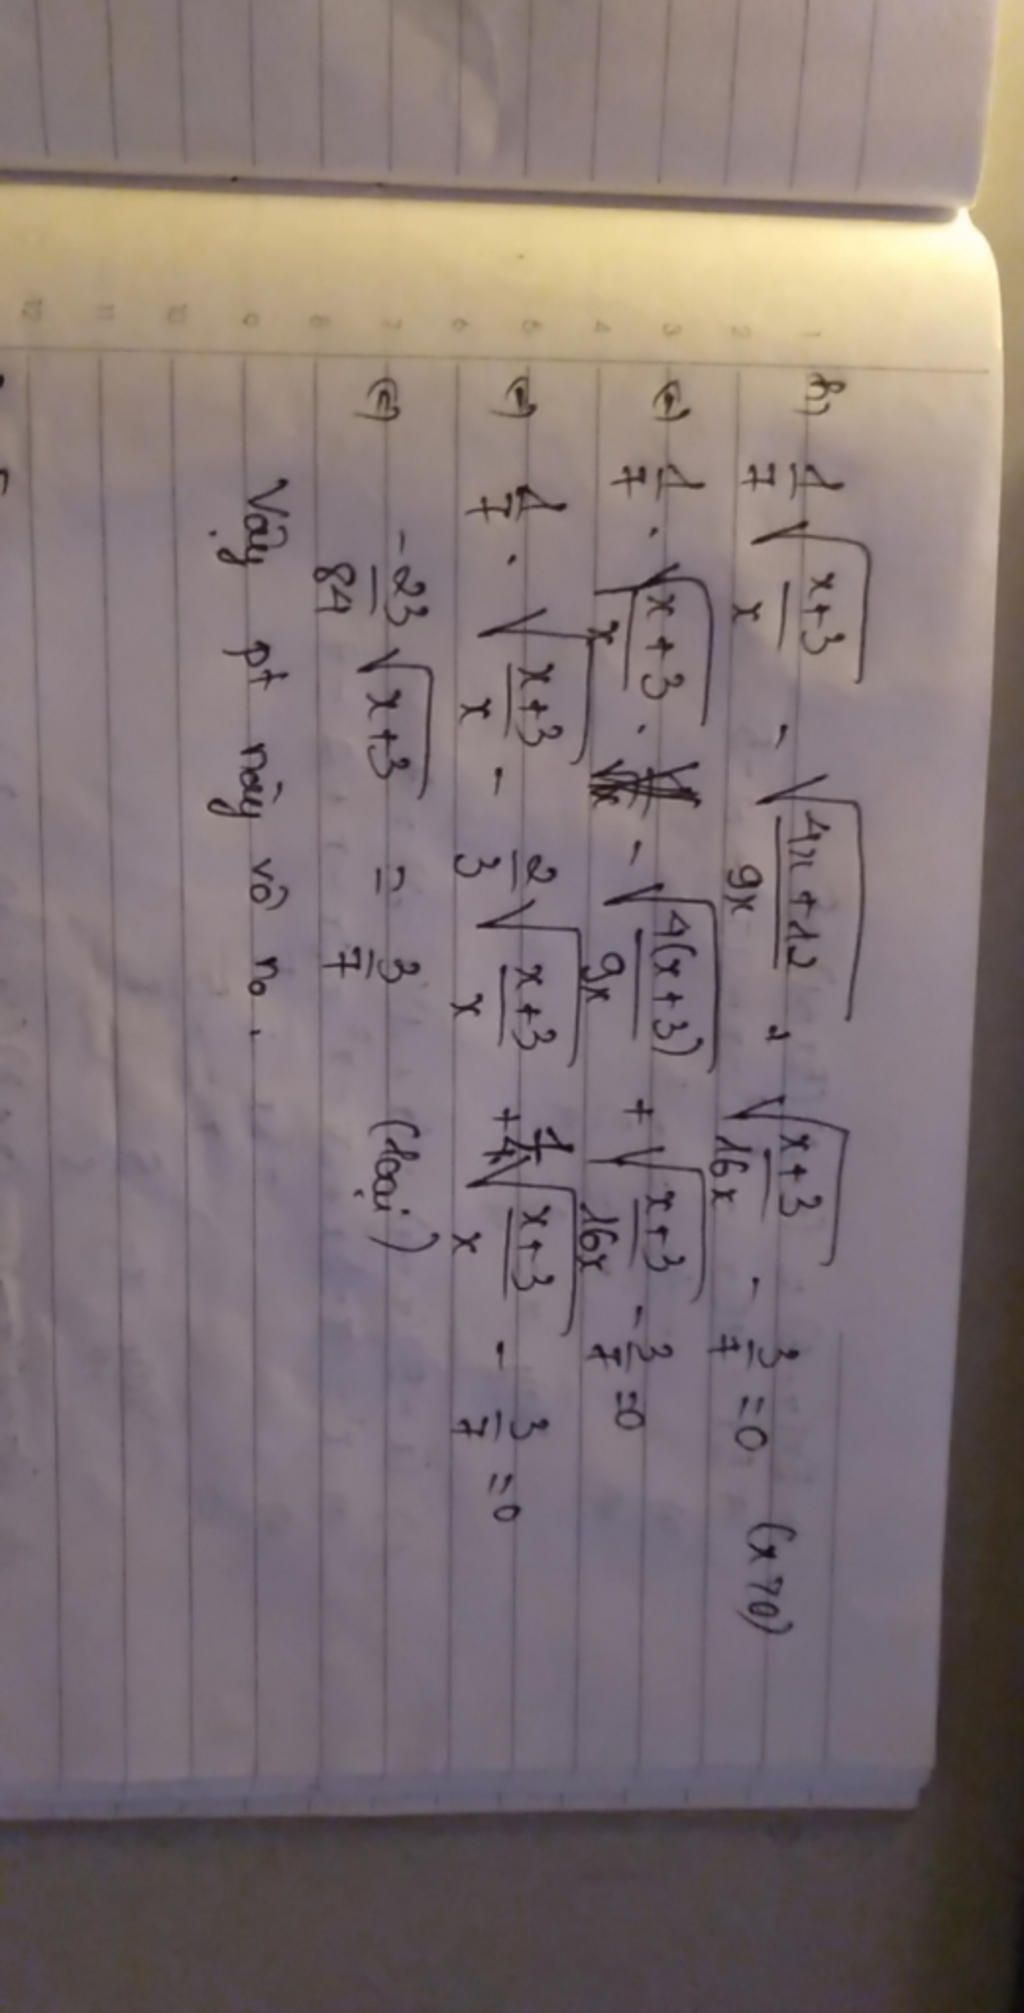 h) 1/7 √((x+3)/x) - √((4x+12)/9x) + √((x+3)/16x) - 3/7 = 0 (x>0)
(=) 1/7 . √((x+3)/x) . - √((4(x+3))/9x) + √((x+3)/16x) - 3/7 = 0
(=) 1/7 . √((x+3)/x) - 2/3 √((x+3)/x) + 1/4 √((x+3)/x) - 3/7 = 0
(=) -23/84 √(x+3) = 3/7 (loại)
Vậy pt này vô no.